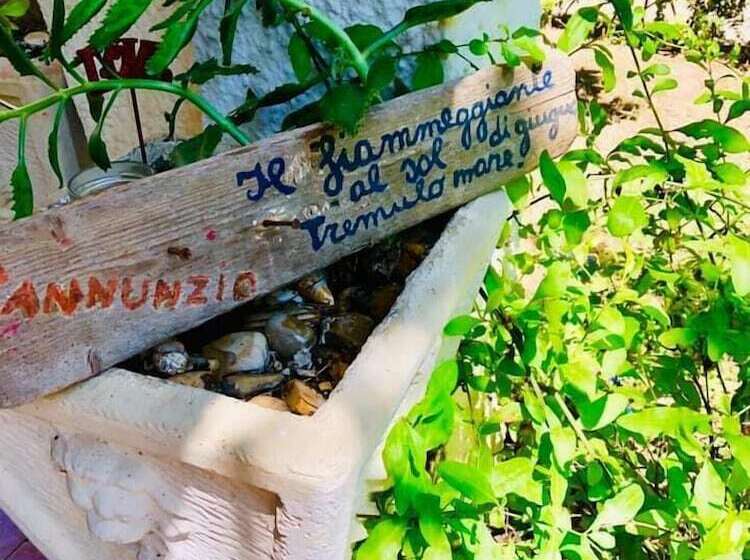 Il fiammeggiante
al sol di giugno
Tremulo mare!
D'ANNUNZIO